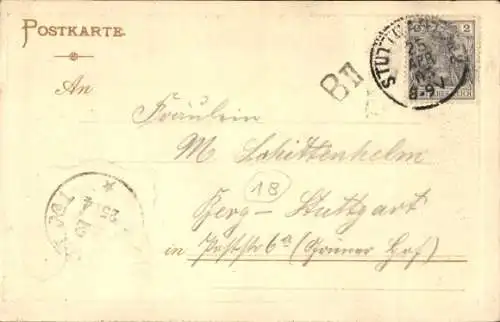 POSTKARTE.
2
STUTTGART
25
APR
8-9 V
BII
An
Fräulein
M. Schittenhelm
18
Berg - Stuttgart
in Poststr 6a (Grüner Hof)
25
4